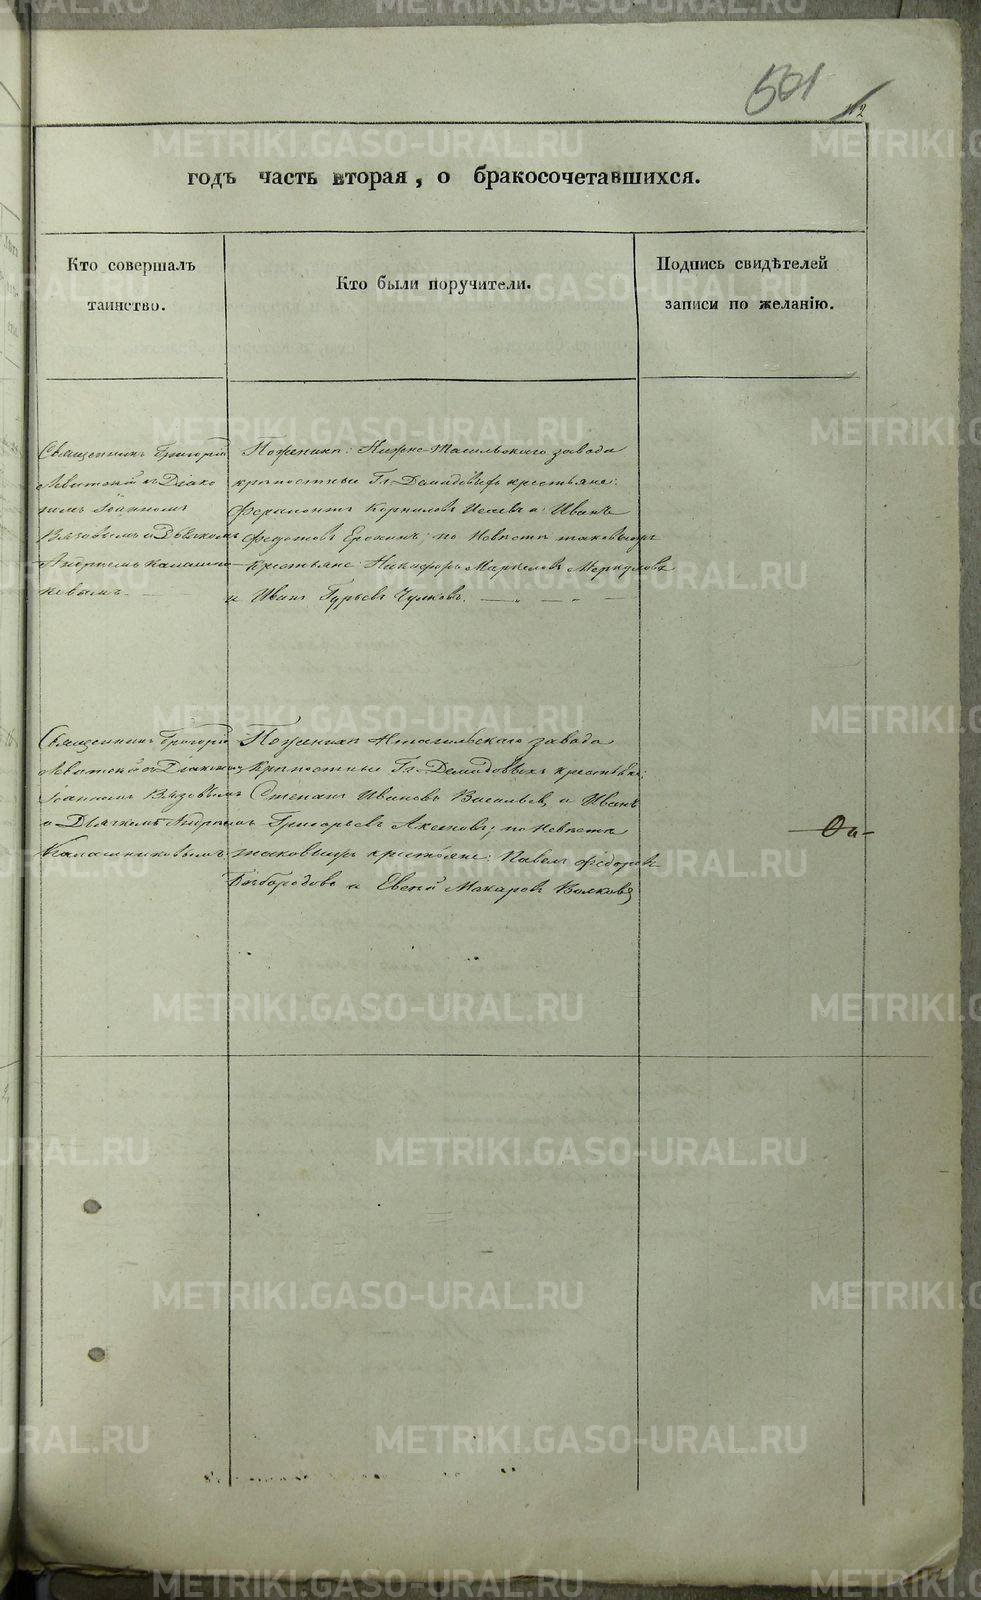 501
годъ часть вторая, о бракосочетавшихся.
Кто совершалъ
таинство.
Кто были поручители.
Подпись свидѣтелей
записи по желанію.
Священникъ Григорій
съ Діако
номъ Іоанномъ
и Дьячкомъ
Андреемъ Калашни
ковымъ.
По женихѣ: Нижне-Тагильскаго завода
крѣпостные Гг. Демидовыхъ крестьяне:
Корниловъ и Иванъ
Федотовъ по невѣстѣ таковыеже
крестьяне: Никифоръ Маркеловъ Меркуловъ
и Иванъ Гурьевъ Чулковъ.
Священникъ Григорій
съ Діакономъ
Іоанномъ
и Дьячкомъ Андреемъ
Калашниковымъ.
По женихѣ Нтагильскаго завода
крѣпостные Гг. Демидовыхъ крестьяне:
Степанъ Ивановъ Васильевъ, и Иванъ
Григорьевъ Аксеновъ; по невѣстѣ
таковыеже крестьяне: Павелъ Федоровъ
и Макаровъ Волковъ
METRIKI.GASO-URAL.RU